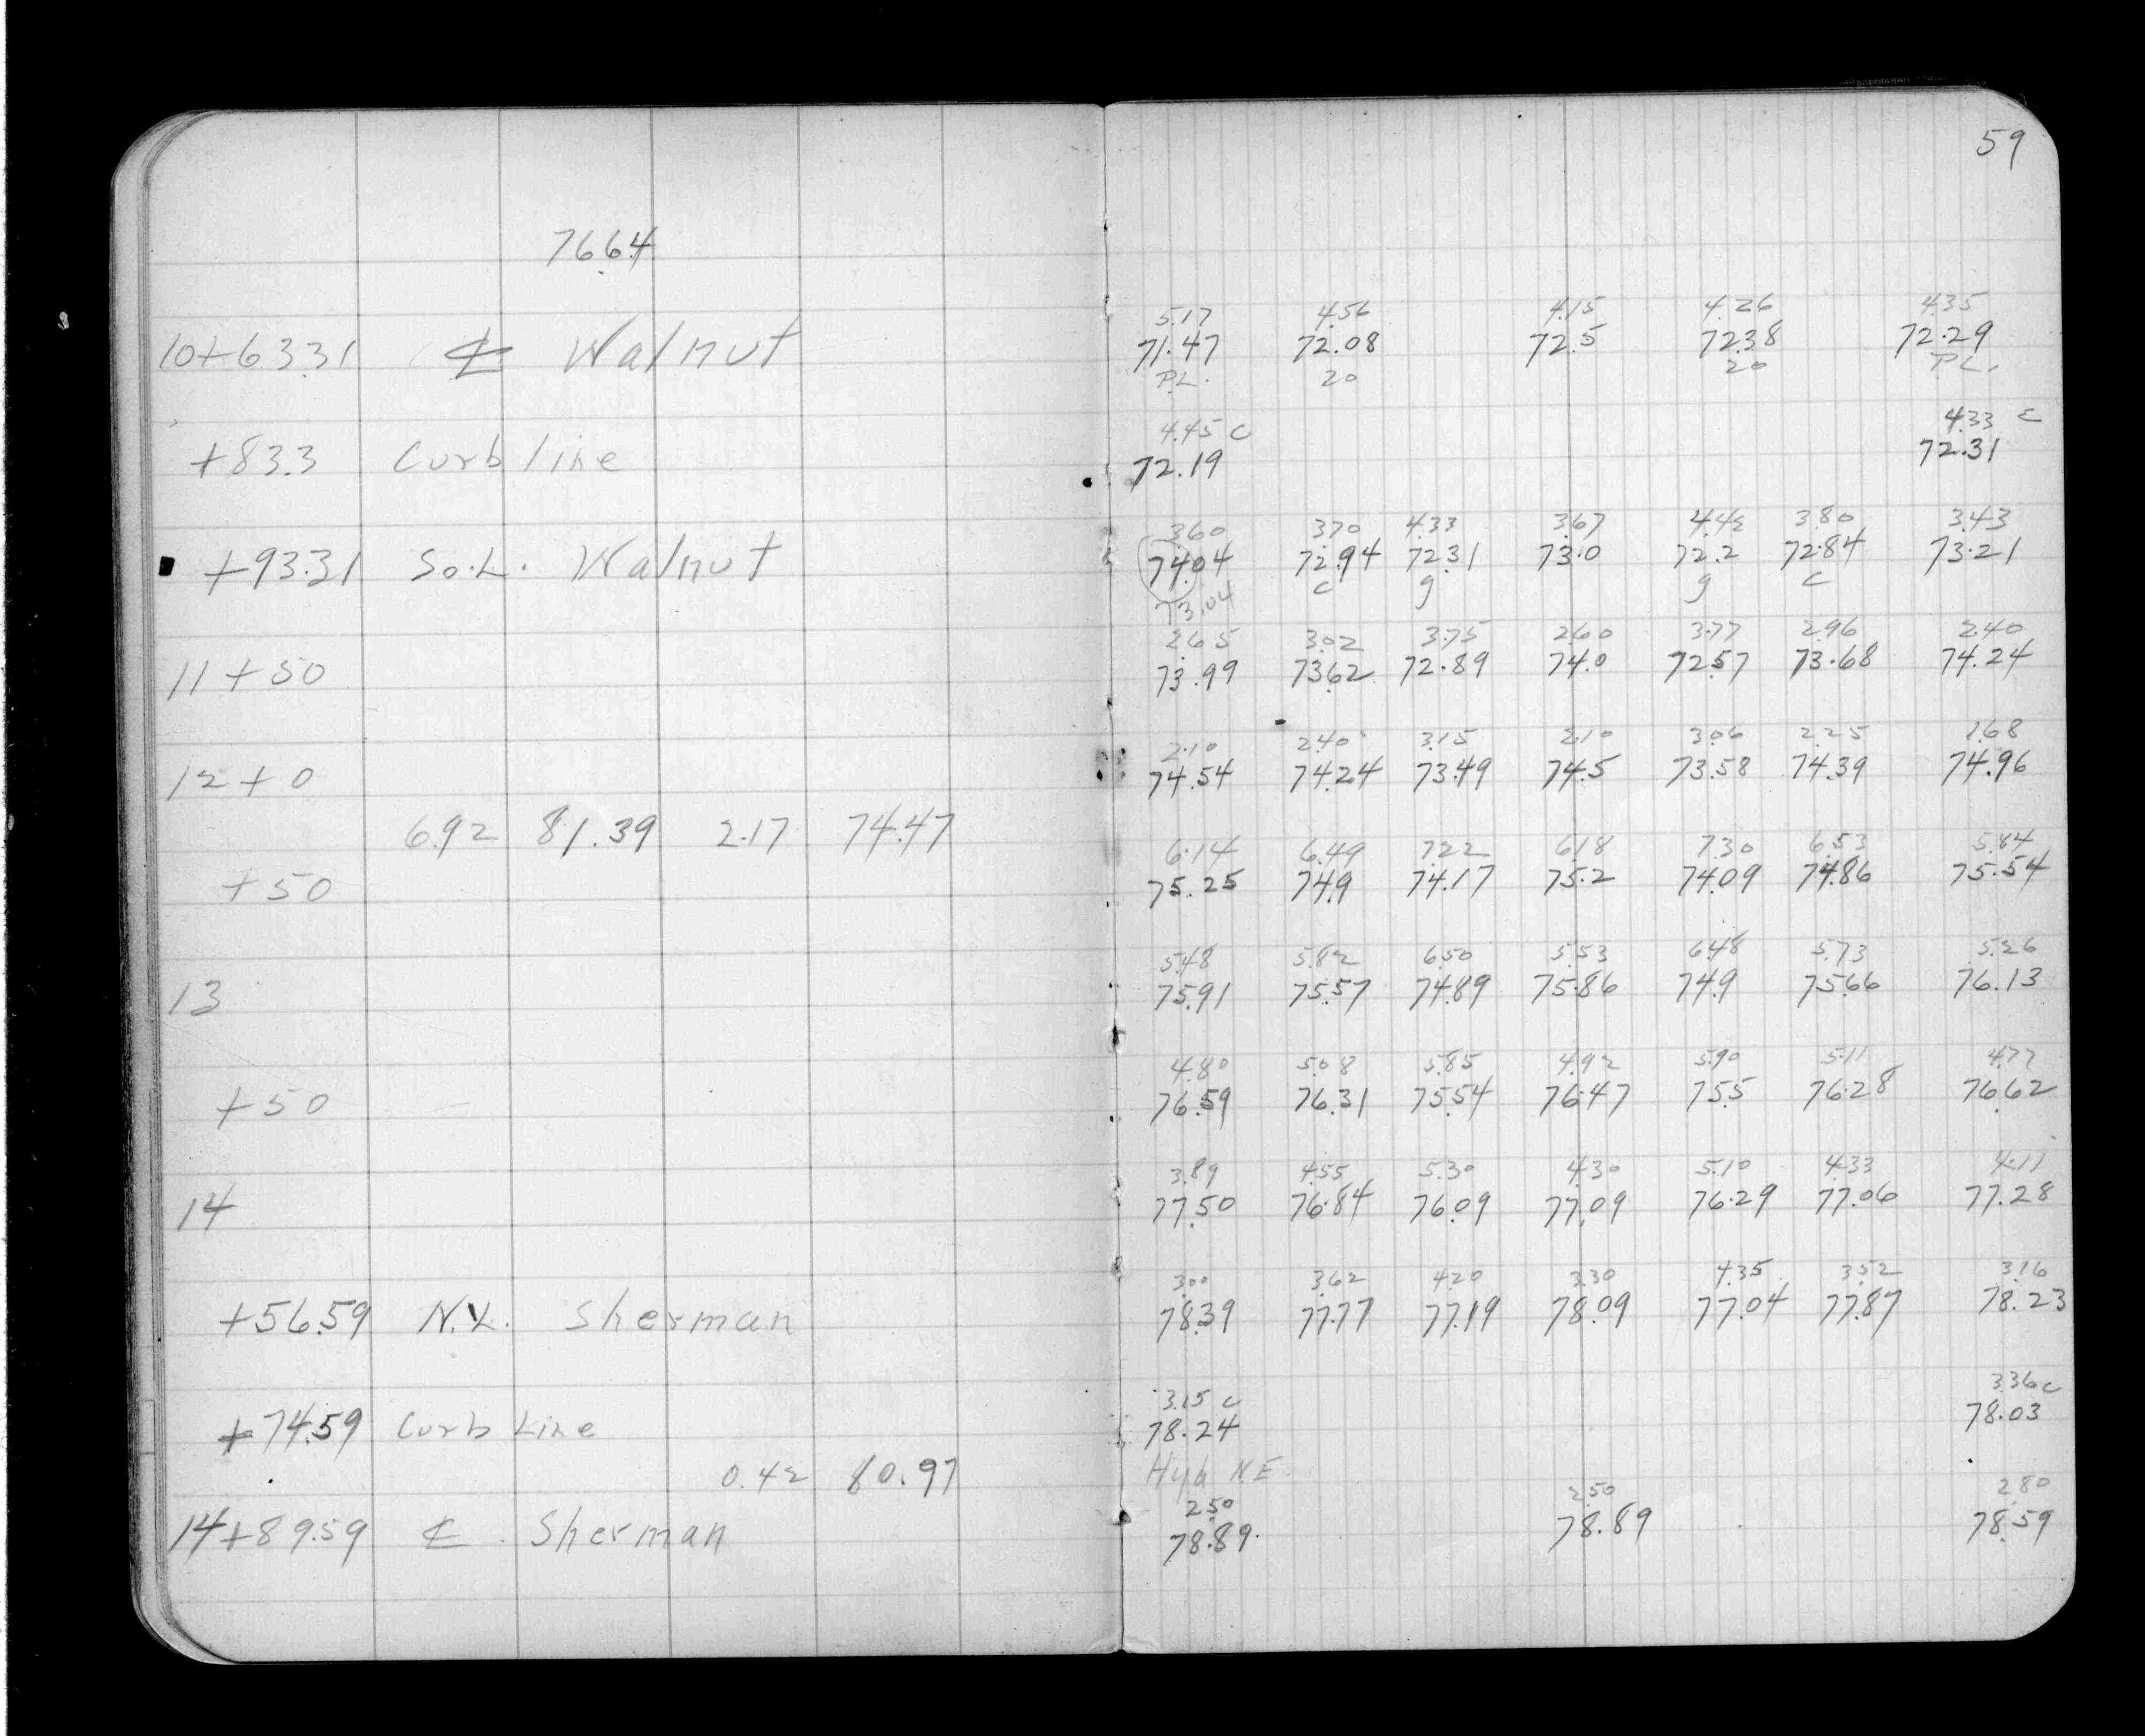 59
76.64
5.17 4.56 4.15 4.26 4.35
10+63.31 ℄ Walnut 71.47 72.08 72.5 72.38 72.29
PL. 20 20 PL.
4.45 c 4.33 c
+83.3 Curb line 72.19 72.31
3.60 3.70 4.33 3.67 4.42 3.80 3.43
+93.31 So.L. Walnut 74.04 72.94 72.31 73.0 72.2 72.84 73.21
73.04 c g g c
2.65 3.02 3.75 2.60 3.77 2.96 2.40
11+50 73.99 73.62 72.89 74.0 72.57 73.68 74.24
2.10 2.40 3.15 2.10 3.06 2.25 1.68
12+0 74.54 74.24 73.49 74.5 73.58 74.39 74.96
6.92 81.39 2.17 74.47
6.14 6.49 7.22 6.18 7.30 6.53 5.84
+50 75.25 74.9 74.17 75.2 74.09 74.86 75.54
5.48 5.82 6.50 5.53 6.48 5.73 5.26
13 75.91 75.57 74.89 75.86 74.9 75.66 76.13
4.80 5.08 5.85 4.92 5.90 5.11 4.77
+50 76.59 76.31 75.54 76.47 75.5 76.28 76.62
3.89 4.55 5.30 4.30 5.10 4.33 4.11
14 77.50 76.84 76.09 77.09 76.29 77.06 77.28
3.00 3.62 4.20 3.30 4.35 3.52 3.16
+56.59 N.L. Sherman 78.39 77.77 77.19 78.09 77.04 77.87 78.23
3.15 c 3.36 c
+74.59 Curb Line 78.24 78.03
0.42 80.97 Hyd N.E.
2.50 2.50 2.80
14+89.59 ℄ Sherman 78.89 78.89 78.59